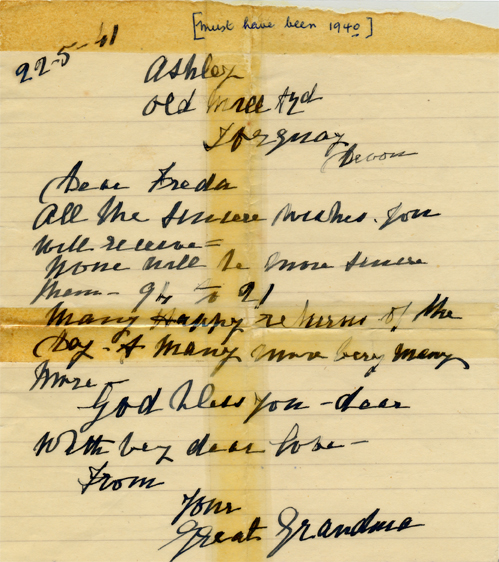 [Must have been 1940]
22-5-41
Ashley
Old Mill Rd
Torquay
Devon
Dear Freda
All the sincere wishes you
will receive =
None will be more sincere
than - 94 to 21
Many Happy returns of the
Day - & many more very many
more -
God bless you - dear
With very dear love -
From
Your
Great Grandma